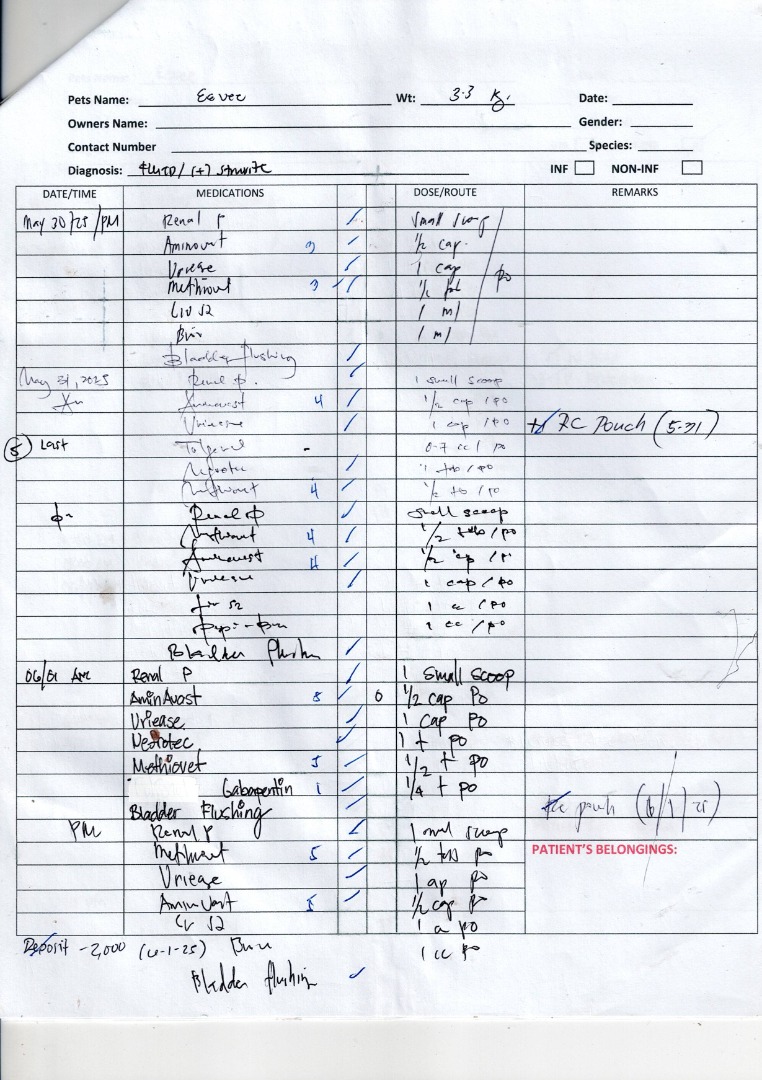 Pets Name: Eevee Wt: 3.3 kg. Date:
Owners Name: Gender:
Contact Number Species:
Diagnosis: FLUTD/ (+) struvite INF NON-INF
DATE/TIME MEDICATIONS DOSE/ROUTE REMARKS
May 30/25 /PM Renal P / small scoop
Aminovet 3 / 1/2 cap.
Uriease / 1 cap po
Methiovet 3 / 1/2 tab
Liv 52 1 ml
1 ml
Bladder flushing /
May 31, 2025 Renal P. / 1 small scoop
Am Aminavast 4 / 1/2 cap / po
Uriease / 1 cap / po RC Pouch (5-31)
5 Last - 0.7 cc / po
Nefrotec / 1 tab / po
Methiovet 4 / 1/2 tb / po
pm Renal P / small scoop
Methiovet 4 / 1/2 tab / po
Aminavast 4 / 1/2 cap / po
Uriease / 1 cap / po
Liv 52 1 cc / po
1 cc / po
Bladder Flushing /
06/01 Am Renal P / 1 small scoop
AminAvast 5 / 0 1/2 cap Po
Uriease / 1 cap Po
Nefrotec / 1 t po
Methiovet 5 / 1/2 t po
Gabapentin 1 / 1/4 t po
Bladder Flushing / RC pouch (6/1/25)
PM Renal P / 1 small scoop
Methiovet 5 / 1/2 tab po PATIENT'S BELONGINGS:
Uriease / 1 cap po
Aminavast 5 / 1/2 cap po
Liv 52 1 cc po
Deposit - 2,000 (6-1-25) 1 cc po
Bladder flushing /